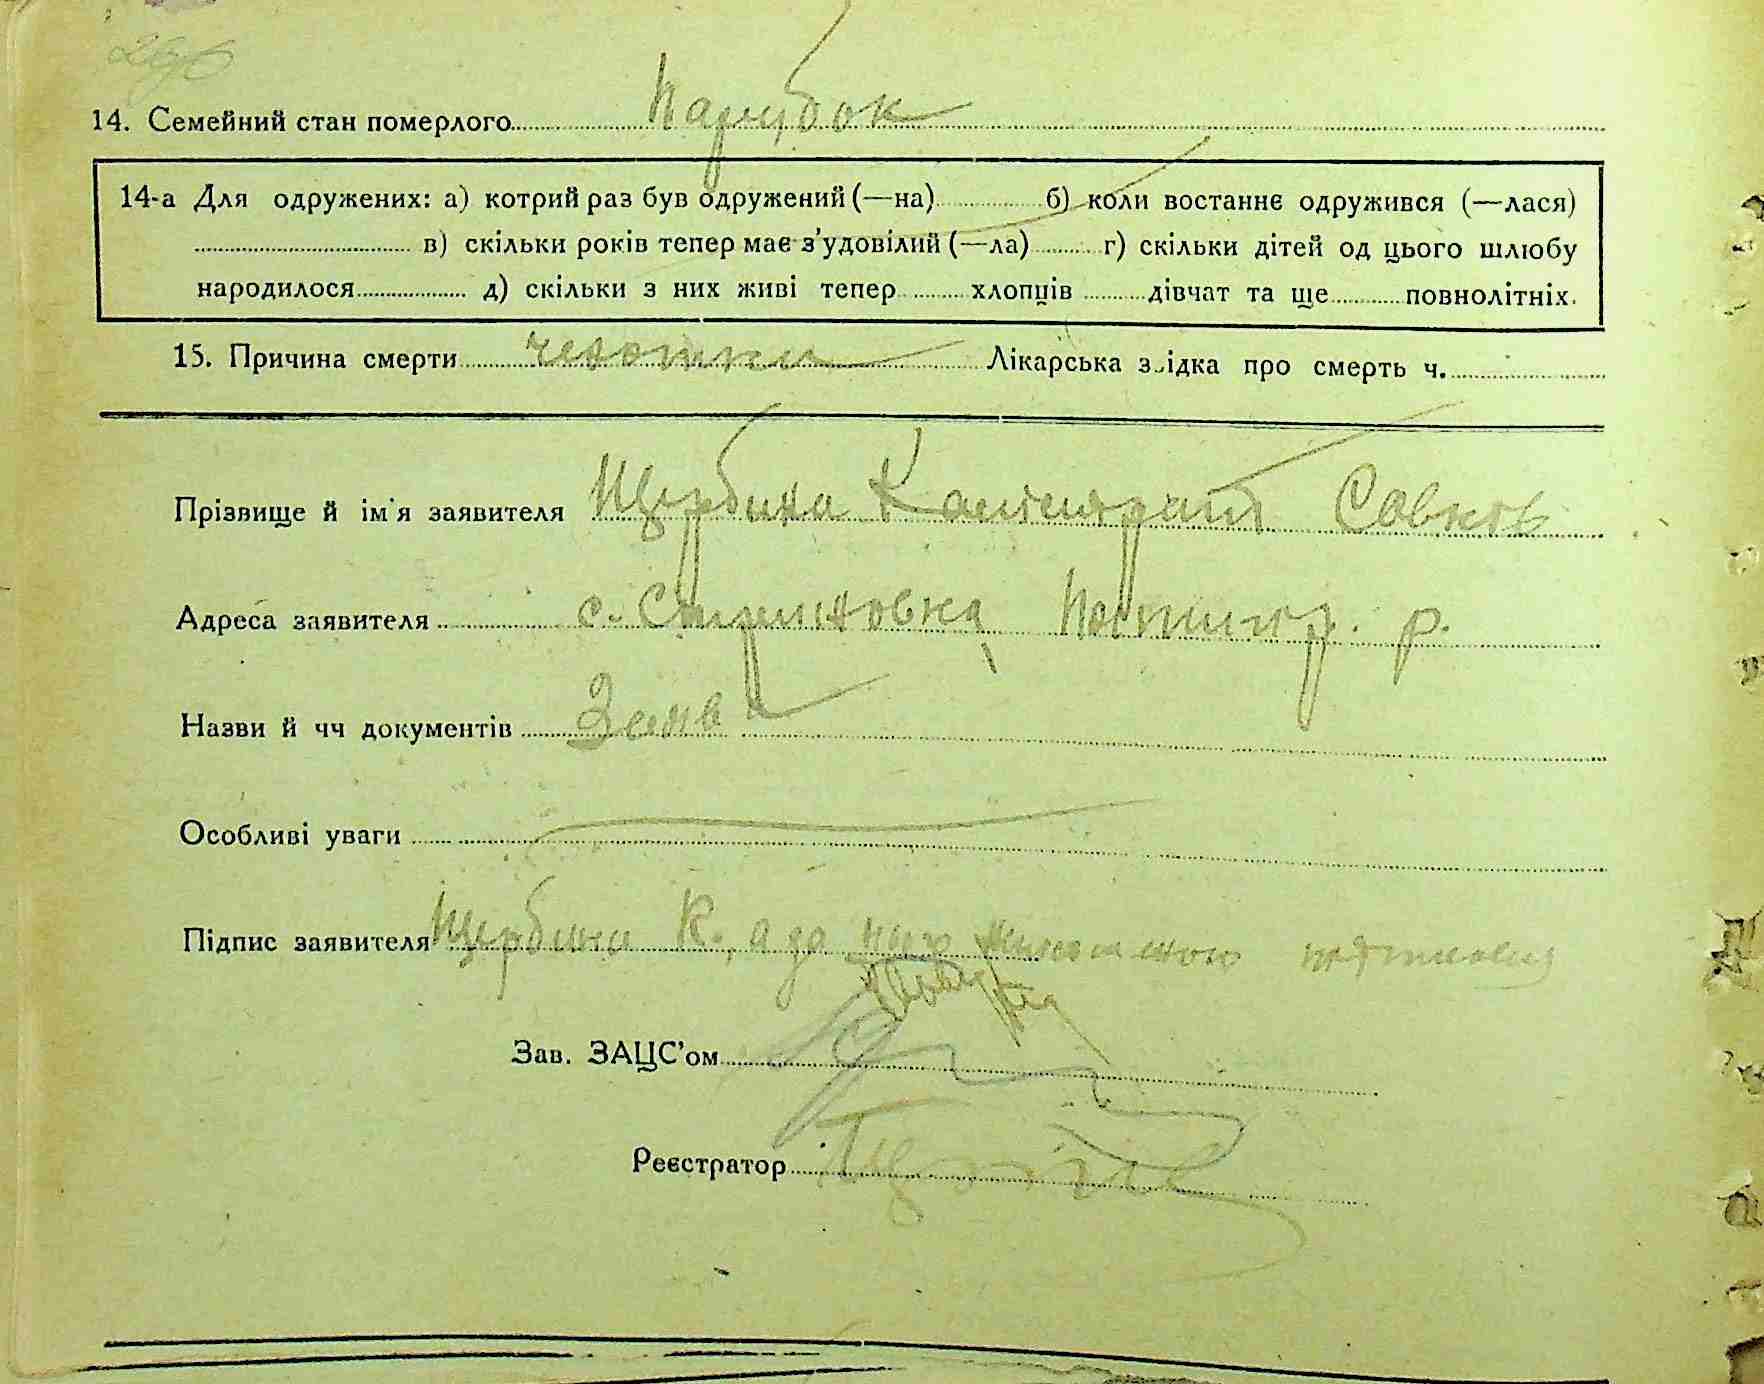 14. Семейний стан померлого Парубок
14-а Для одружених: а) котрий раз був одружений (—на) б) коли востаннє одружився (—лася)
в) скільки років тепер має з'удовілий (—ла) г) скільки дітей од цього шлюбу
народилося д) скільки з них живі тепер хлопців дівчат та ще повнолітніх.
15. Причина смерти чахотки Лікарська з ідка про смерть ч.
Прізвище й ім'я заявителя Щербина Калистрат Савков
Адреса заявителя с. р.
Назви й чч документів Заява
Особливі уваги
Підпис заявителя Щербина К., а за
Зав. ЗАЦС'ом
Реєстратор